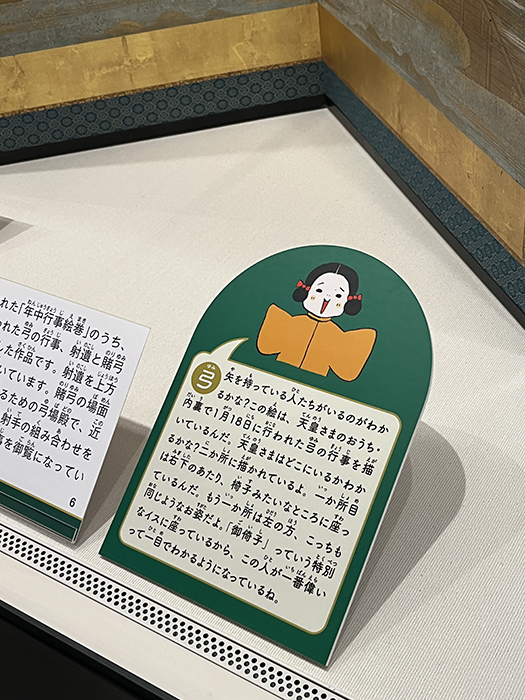 れた「年中行事絵巻」のうち、
われた弓の行事、射遺と賭弓
した作品です。射遺を上方
いています。賭弓の場面
るための弓場殿で、近
射手の組み合わせを
事を御覧になってい
6
弓
矢を持っている人たちがいるのがわか
るかな?この絵は、天皇さまのおうち・
内裏で1月18日に行われた弓の行事を描
いているんだ。天皇さまはどこにいるかわか
るかな?二か所に描かれているよ。一か所目
は右下のあたり、椅子みたいなところに座っ
ているんだ。もう一か所は左の方、こっちも
同じようなお姿だよ。「御倚子」っていう特別
なイスに座っているから、この人が一番偉い
って一目でわかるようになっているね。